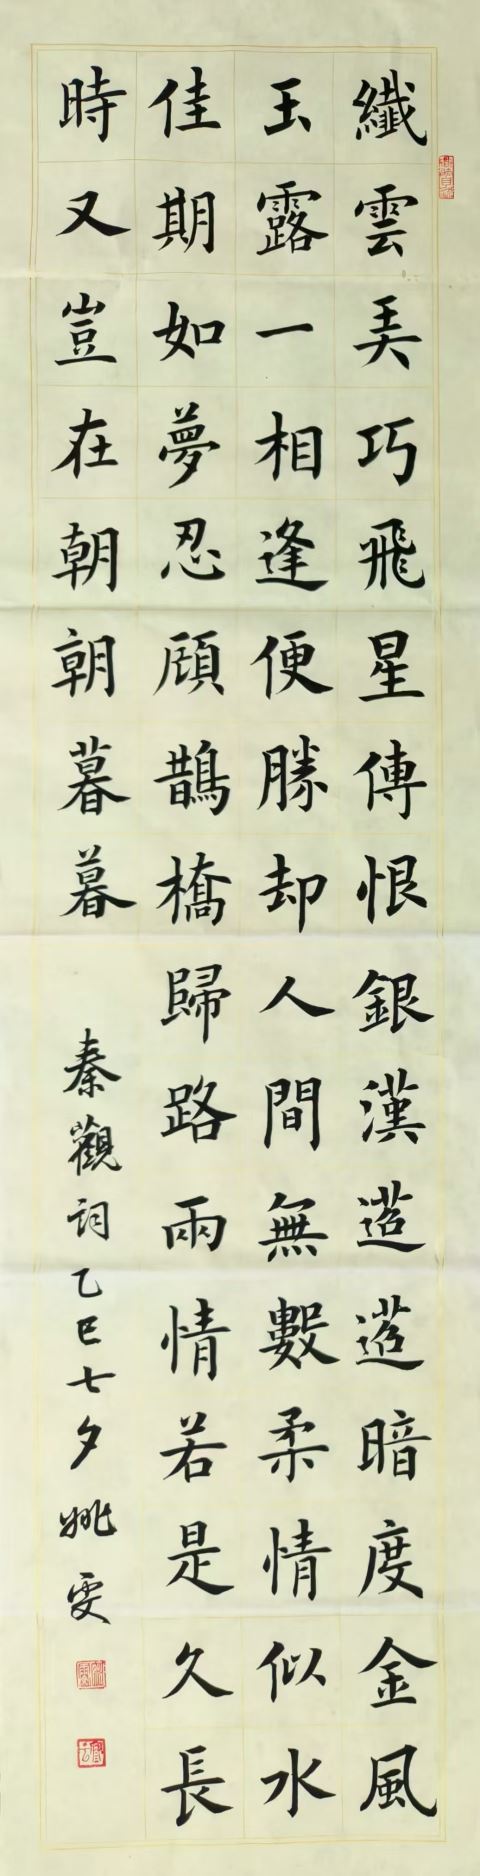 纖雲弄巧飛星傳恨銀漢迢迢暗度金風
玉露一相逢便勝却人間無數柔情似水
佳期如夢忍顧鵲橋歸路兩情若是久長
時又豈在朝朝暮暮
秦觀詞乙巳七夕姚雯